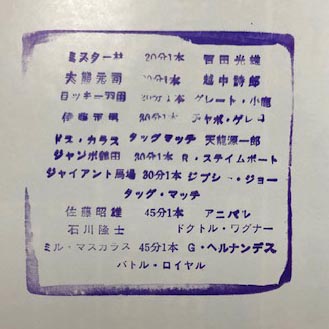 ミスター林 20分1本 冨田光雄
大熊元司 20分1本 越中詩郎
ロッキー羽田 20分1本 グレート・小鹿
伊藤正男 20分1本 チャボ・ゲレロ
ドス・カラス タッグマッチ 天龍源一郎
ジャンボ鶴田 30分1本 R・スティムボート
ジャイアント馬場 30分1本 ジプシー・ジョー
タッグ・マッチ
佐藤昭雄 45分1本 アニバル
石川隆士 ドクトル・ワグナー
ミル・マスカラス 45分1本 G・ヘルナンデス
バトル・ロイヤル